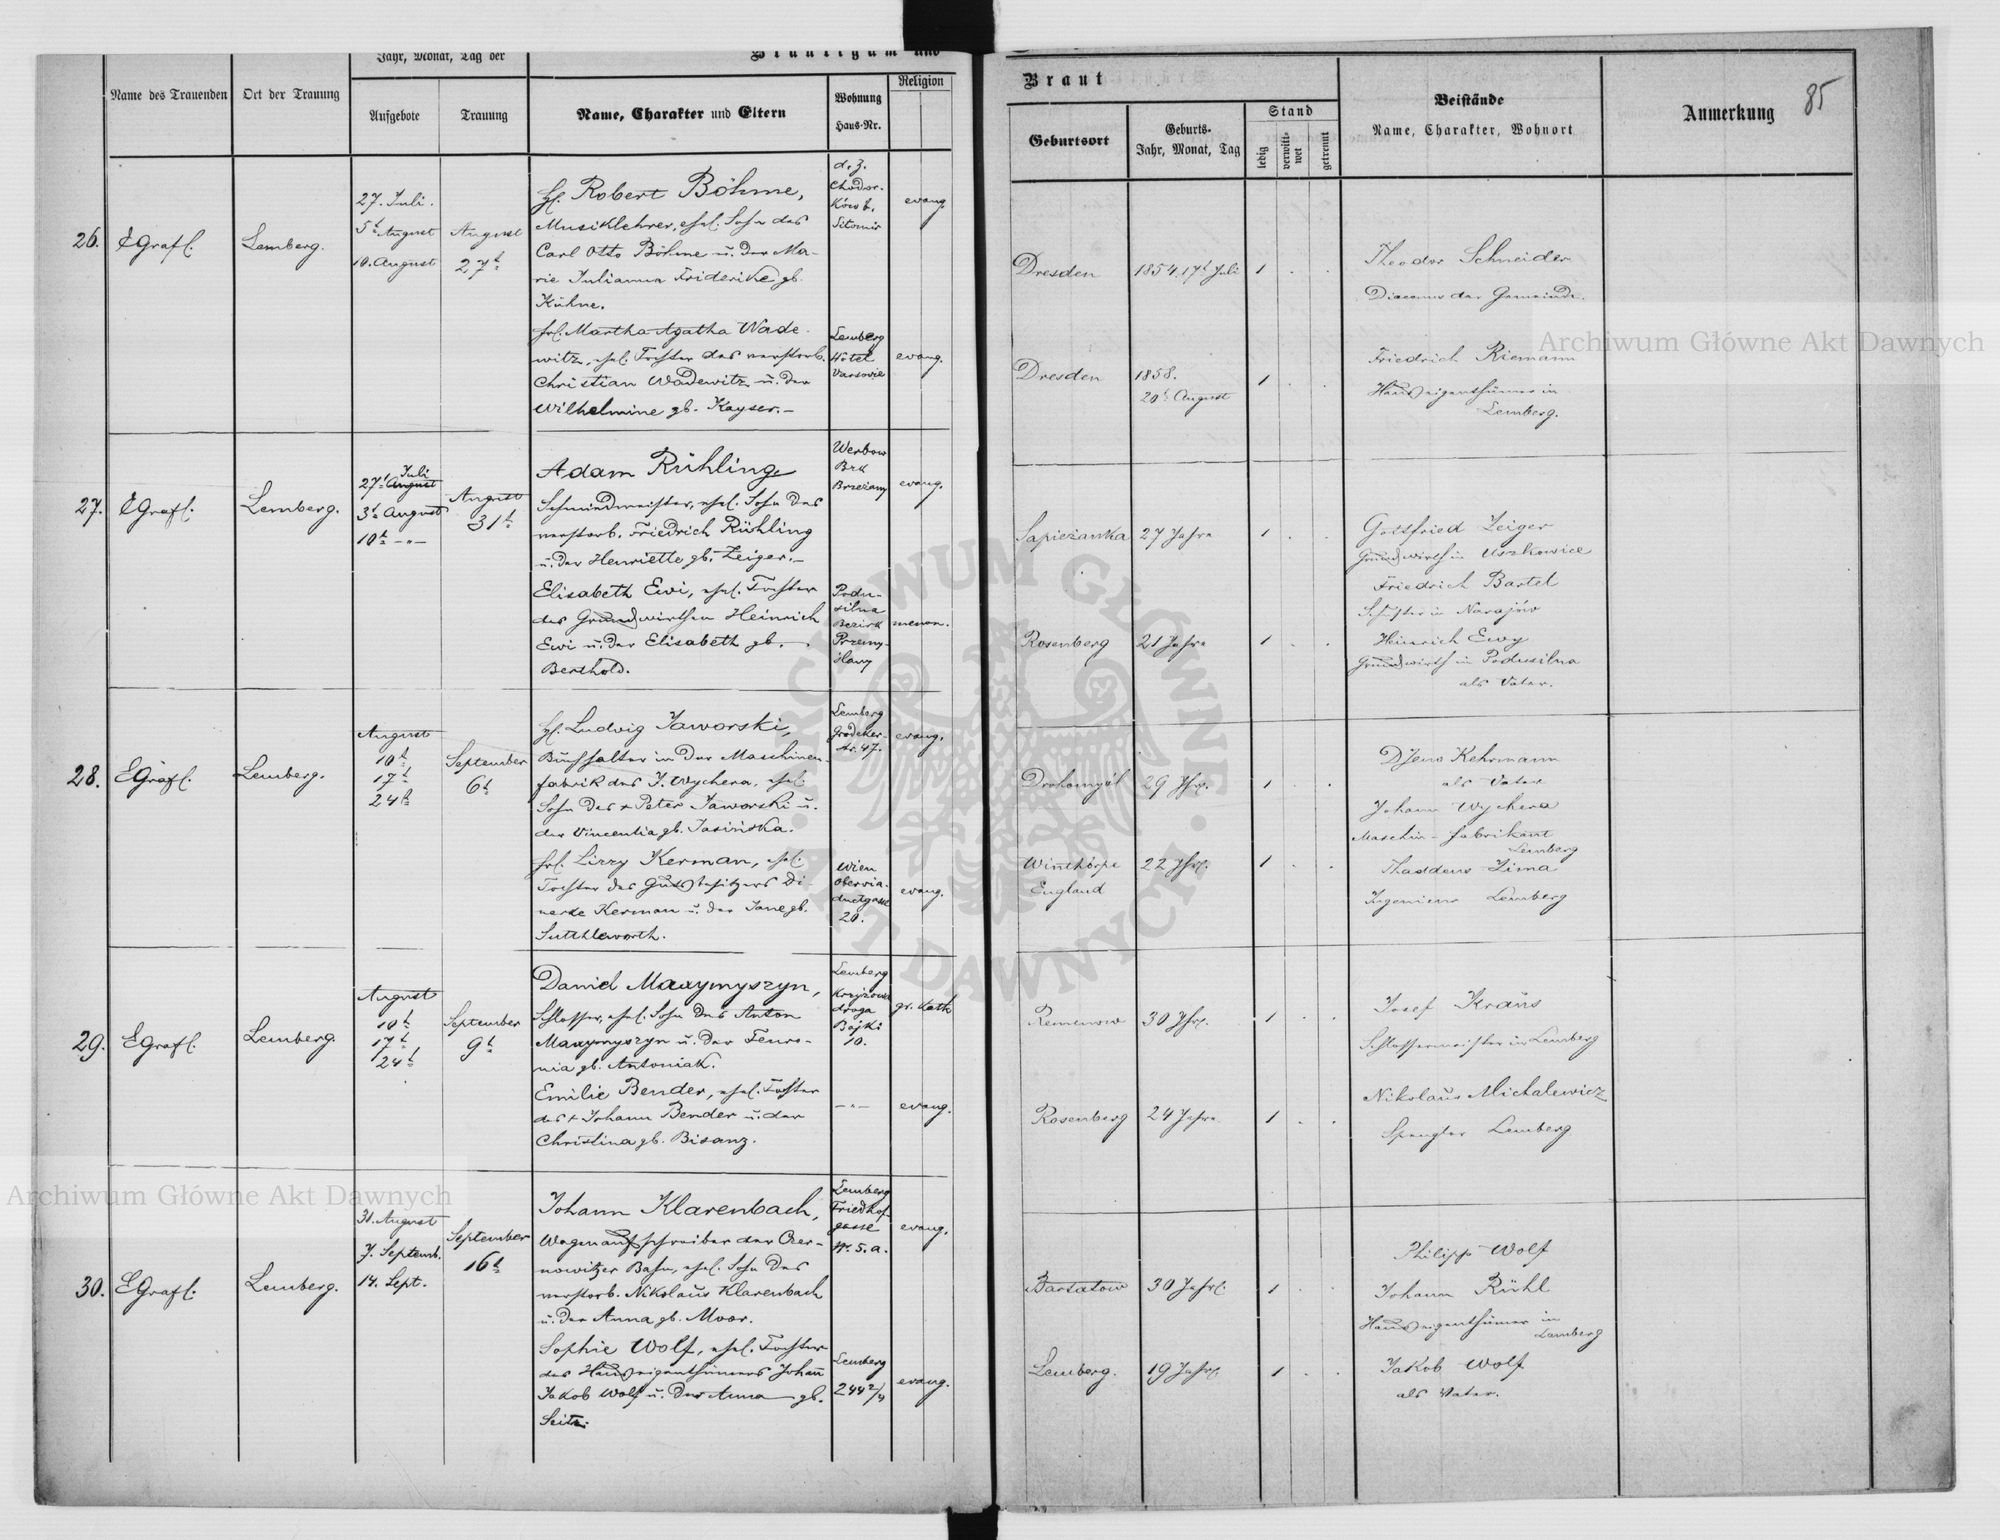 Jahr, Monat, Tag der
Bräutigam und
Name des Trauenden
Ort der Trauung
Aufgebote
Trauung
Name, Charakter und Eltern
Wohnung
Haus-Nr.
Religion
Braut
Geburtsort
Geburts-
Jahr, Monat, Tag
Stand
ledig
verwitt-
wet
getrennt
Beistände
Name, Charakter, Wohnort
Anmerkung
85
26.
EGrafl.
Lemberg.
27. Juli.
5t August
10. August
August
27t
H. Robert Böhme,
Musiklehrer, ehel. Sohn des
Carl Otto Böhme u. der Ma-
rie Julianna Friderike gb.
Kühne.
d. z.
Chodor-
Sitomir
evang.
Dresden
1854. 17t Juli
1
Theodor Schneider
Diaconus der Gemeinde.
frl. Martha Agatha Wade-
witz, ehel. Tochter des verstorb.
Christian Wadewitz u. der
Wilhelmine gb. Kayser.-
Lemberg
Hôtel
Varsovie
evang.
Dresden
1858.
20t August
1
Friedrich Riemann
Hauseigenthümer in
Lemberg.
27.
EGrafl.
Lemberg.
Juli
27t August
3t August
10t -"-
August
31t
Adam Rühling,
Schmiedmeister, ehel. Sohn des
verstorb. Friedrich Rühling
u. der Henriette gb. Zeiger.-
Werbow
Brzeżany
evang.
Sapieżanka
27 Jahre
1
Gottfried Zeiger
Grundwirth in Uszkowice
Friedrich Bartel
in Narajów
Elisabeth Ewi, ehel. Tochter
des Grundwirthen Heinrich
Ewi u. der Elisabeth gb.
Berthold.
Podu-
silna
Bezirk
Przemy-
ślany
menon.
Rosenberg
21 Jahre
1
Heinrich Ewy
Grundwirth in Podusilna
als Vater.
28.
EGrafl.
Lemberg.
August
10t
17t
24t
September
6t
H. Ludwig Jaworski,
Buchhalter in der Maschinen-
fabrik des J. Wychera, ehel.
Sohn des + Peter Jaworski u.
der Vincentia gb. Jasińska.
Lemberg
Grodeker-
str. 47.
evang.
Drohomyśl
29 Jhr.
1
Kehrmann
als Vater
Johann Wychera
Maschin-fabrikant
Lemberg
frl. Lizzy Kerman, ehel.
Tochter des Gutsbesitzers Di-
Kerman u. der Jane gb.
Sutthleworth.
Wien
Obervia-
ductgasse
20.
evang.
Winthorpe
England
22 Jhr.
1
Thaddeus Zima
Ingenieur Lemberg
29.
EGrafl.
Lemberg.
August
10t
17t
24t
September
9t
Daniel Maxymyszyn,
Schlosser, ehel. Sohn des Anton
Maxymyszyn u. der Feuro-
nia gb. Antoniak.
Lemberg
droga
Bojki
10.
gr. kath
Remenow
30 Jhr.
1
Josef Kraus
Schlossermeister in Lemberg
Emilie Bender, ehel. Tochter
des + Johann Bender u. der
Christina gb. Bisanz.
-"-
evang.
Rosenberg
24 Jahre
1
Nikolaus Michalewicz
Spengler Lemberg
30.
EGrafl.
Lemberg.
31. August
7. Septemb.
14. Sept.
September
16t
Johann Klarenbach,
Wagenaufschreiber der Czer-
nowitzer Bahn, ehel. Sohn des
verstorb. Nikolaus Klarenbach
u. der Anna gb. Moor.
Lemberg
Friedhof-
gasse
Nr. 5. a.
evang.
Bartatow
30 Jahre
1
Philipp Wolf
Johann Rühl
Hauseigenthümer in
Lemberg
Sophie Wolf, ehel. Tochter
des Hauseigenthümers Johann
Jakob Wolf u. der Anna gb.
Seitz.
Lemberg
244 2/4
evang.
Lemberg.
19 Jahre
1
Jakob Wolf
als Vater.
Archiwum Główne Akt Dawnych
Archiwum Główne Akt Dawnych
ARCHIWUM GŁÓWNE · AKT DAWNYCH ·